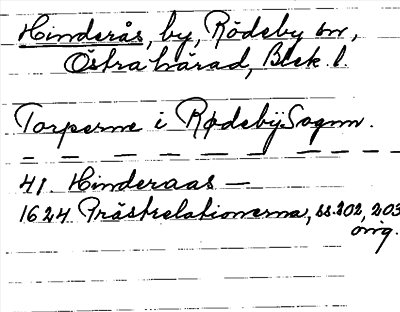 Hinderås, by, Rödeby sn,
Östra härad, Blek. l.
Torperne i RødebÿSognn.
41. Hinderaas —
1624 Prästrelationerna, ss. 202, 203
orig.